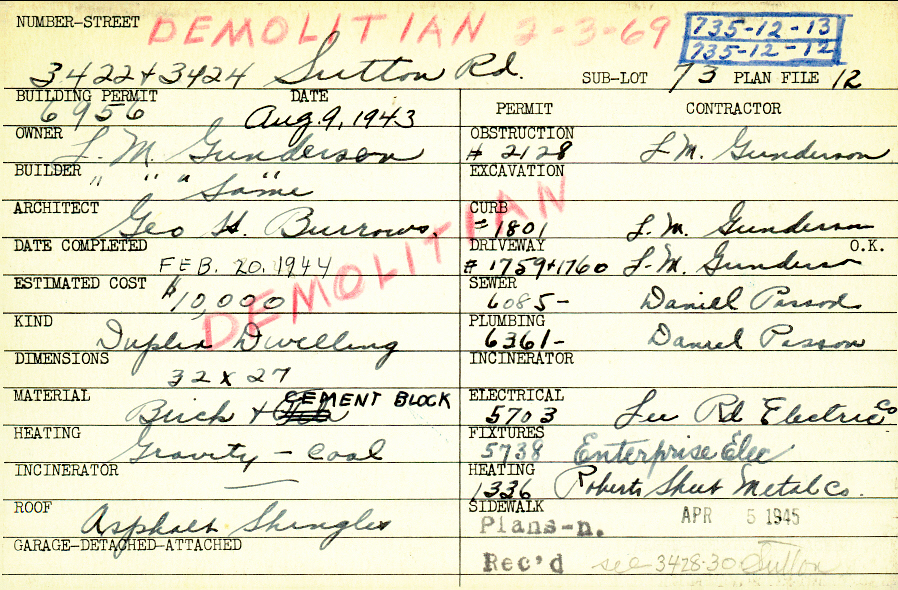 NUMBER-STREET DEMOLITIAN 2-3-69 735-12-13
735-12-12
3422+3424 Sutton Rd. SUB-LOT 73 PLAN FILE 12
BUILDING PERMIT DATE PERMIT CONTRACTOR
6956 Aug. 9, 1943
OWNER L. M. Gunderson OBSTRUCTION
# 2128 L M. Gunderson
BUILDER " " " Same EXCAVATION
ARCHITECT Geo H. Burrows. CURB
# 1801 L. M. Gunderson
DATE COMPLETED DRIVEWAY O.K.
FEB. 20. 1944 # 1759+1760 L. M. Gunderson
ESTIMATED COST $10,000 SEWER
6085- Daniel
DEMOLITIAN
KIND Duplex Dwelling PLUMBING
6361- Daniel
DIMENSIONS INCINERATOR
32 x 27
MATERIAL Brick + CEMENT BLOCK ELECTRICAL
5703 Lee Rd Electric Co
HEATING Gravity - Coal FIXTURES
5738 Enterprise Elec
INCINERATOR — HEATING
1336 Roberts Sheet Metal Co.
ROOF Asphalt Shingles SIDEWALK
Plans-n. APR 5 1945
GARAGE-DETACHED-ATTACHED
Rec'd see 3428-30 Sutton